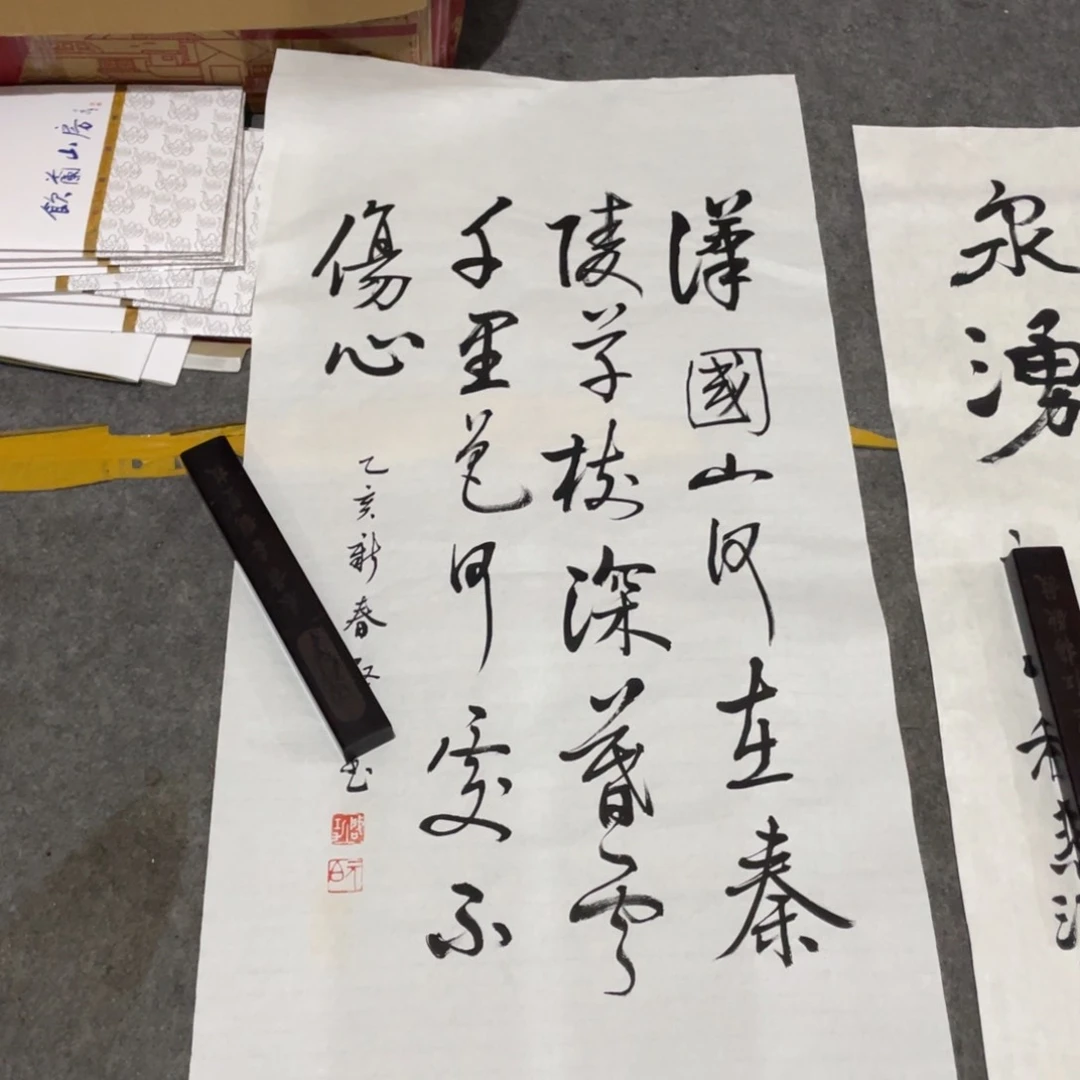 漢國山河在秦
陵草樹深暮雲
千里色何處不
傷心
乙亥新春
書
泉湧
飲蘭山房